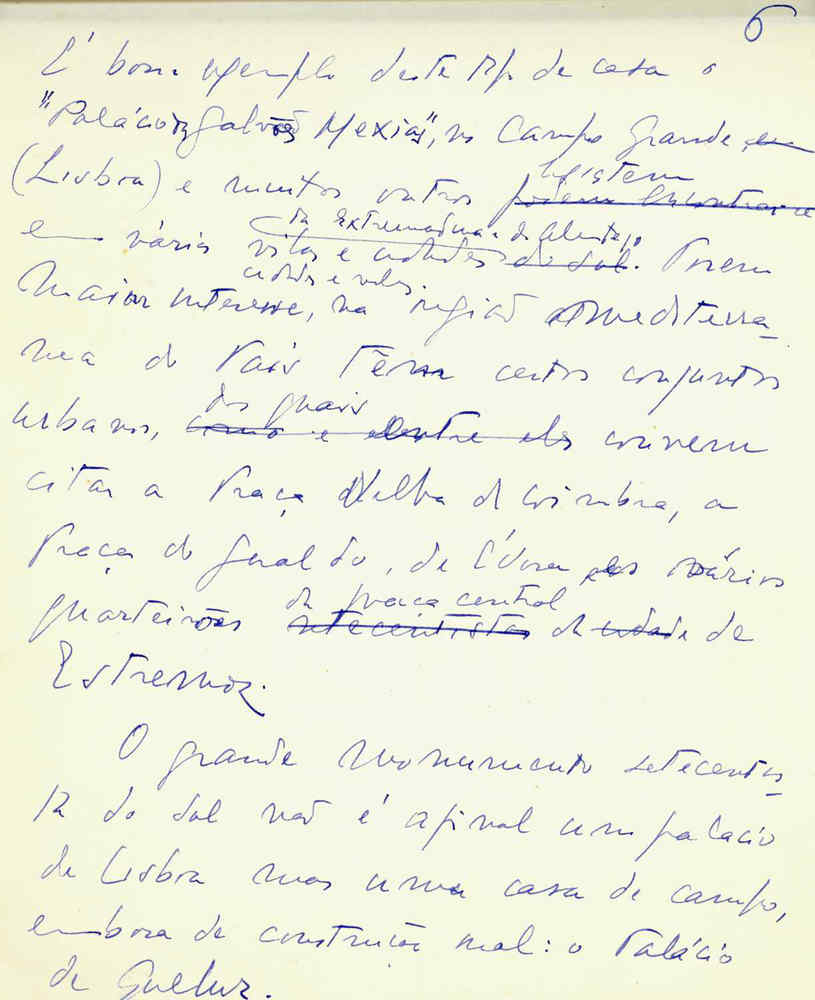 6
É bom exemplo deste tipo de casa o
"Palácio Galvões Mexias", no Campo Grande
(Lisboa) e muitos outros existem
podem encontrar-se
da Extremadura e do Alentejo
em várias vilas e cidades do sul. Porem
cidades e vilas.
maior interesse, na região mediterra-
nea do País têm certos conjuntos
dos quais
urbanos, como e dentre eles convem
citar a Praça Velha de Coimbra, a
Praça do Giraldo, de Évora e os vários
da praça central
quarteirões setecentistas da cidade de
Estremoz.
O grande monumento setecentis-
ta do sul não é afinal um palacio
de Lisboa mas uma casa de campo,
embora de construção real: o Palácio
de Queluz.